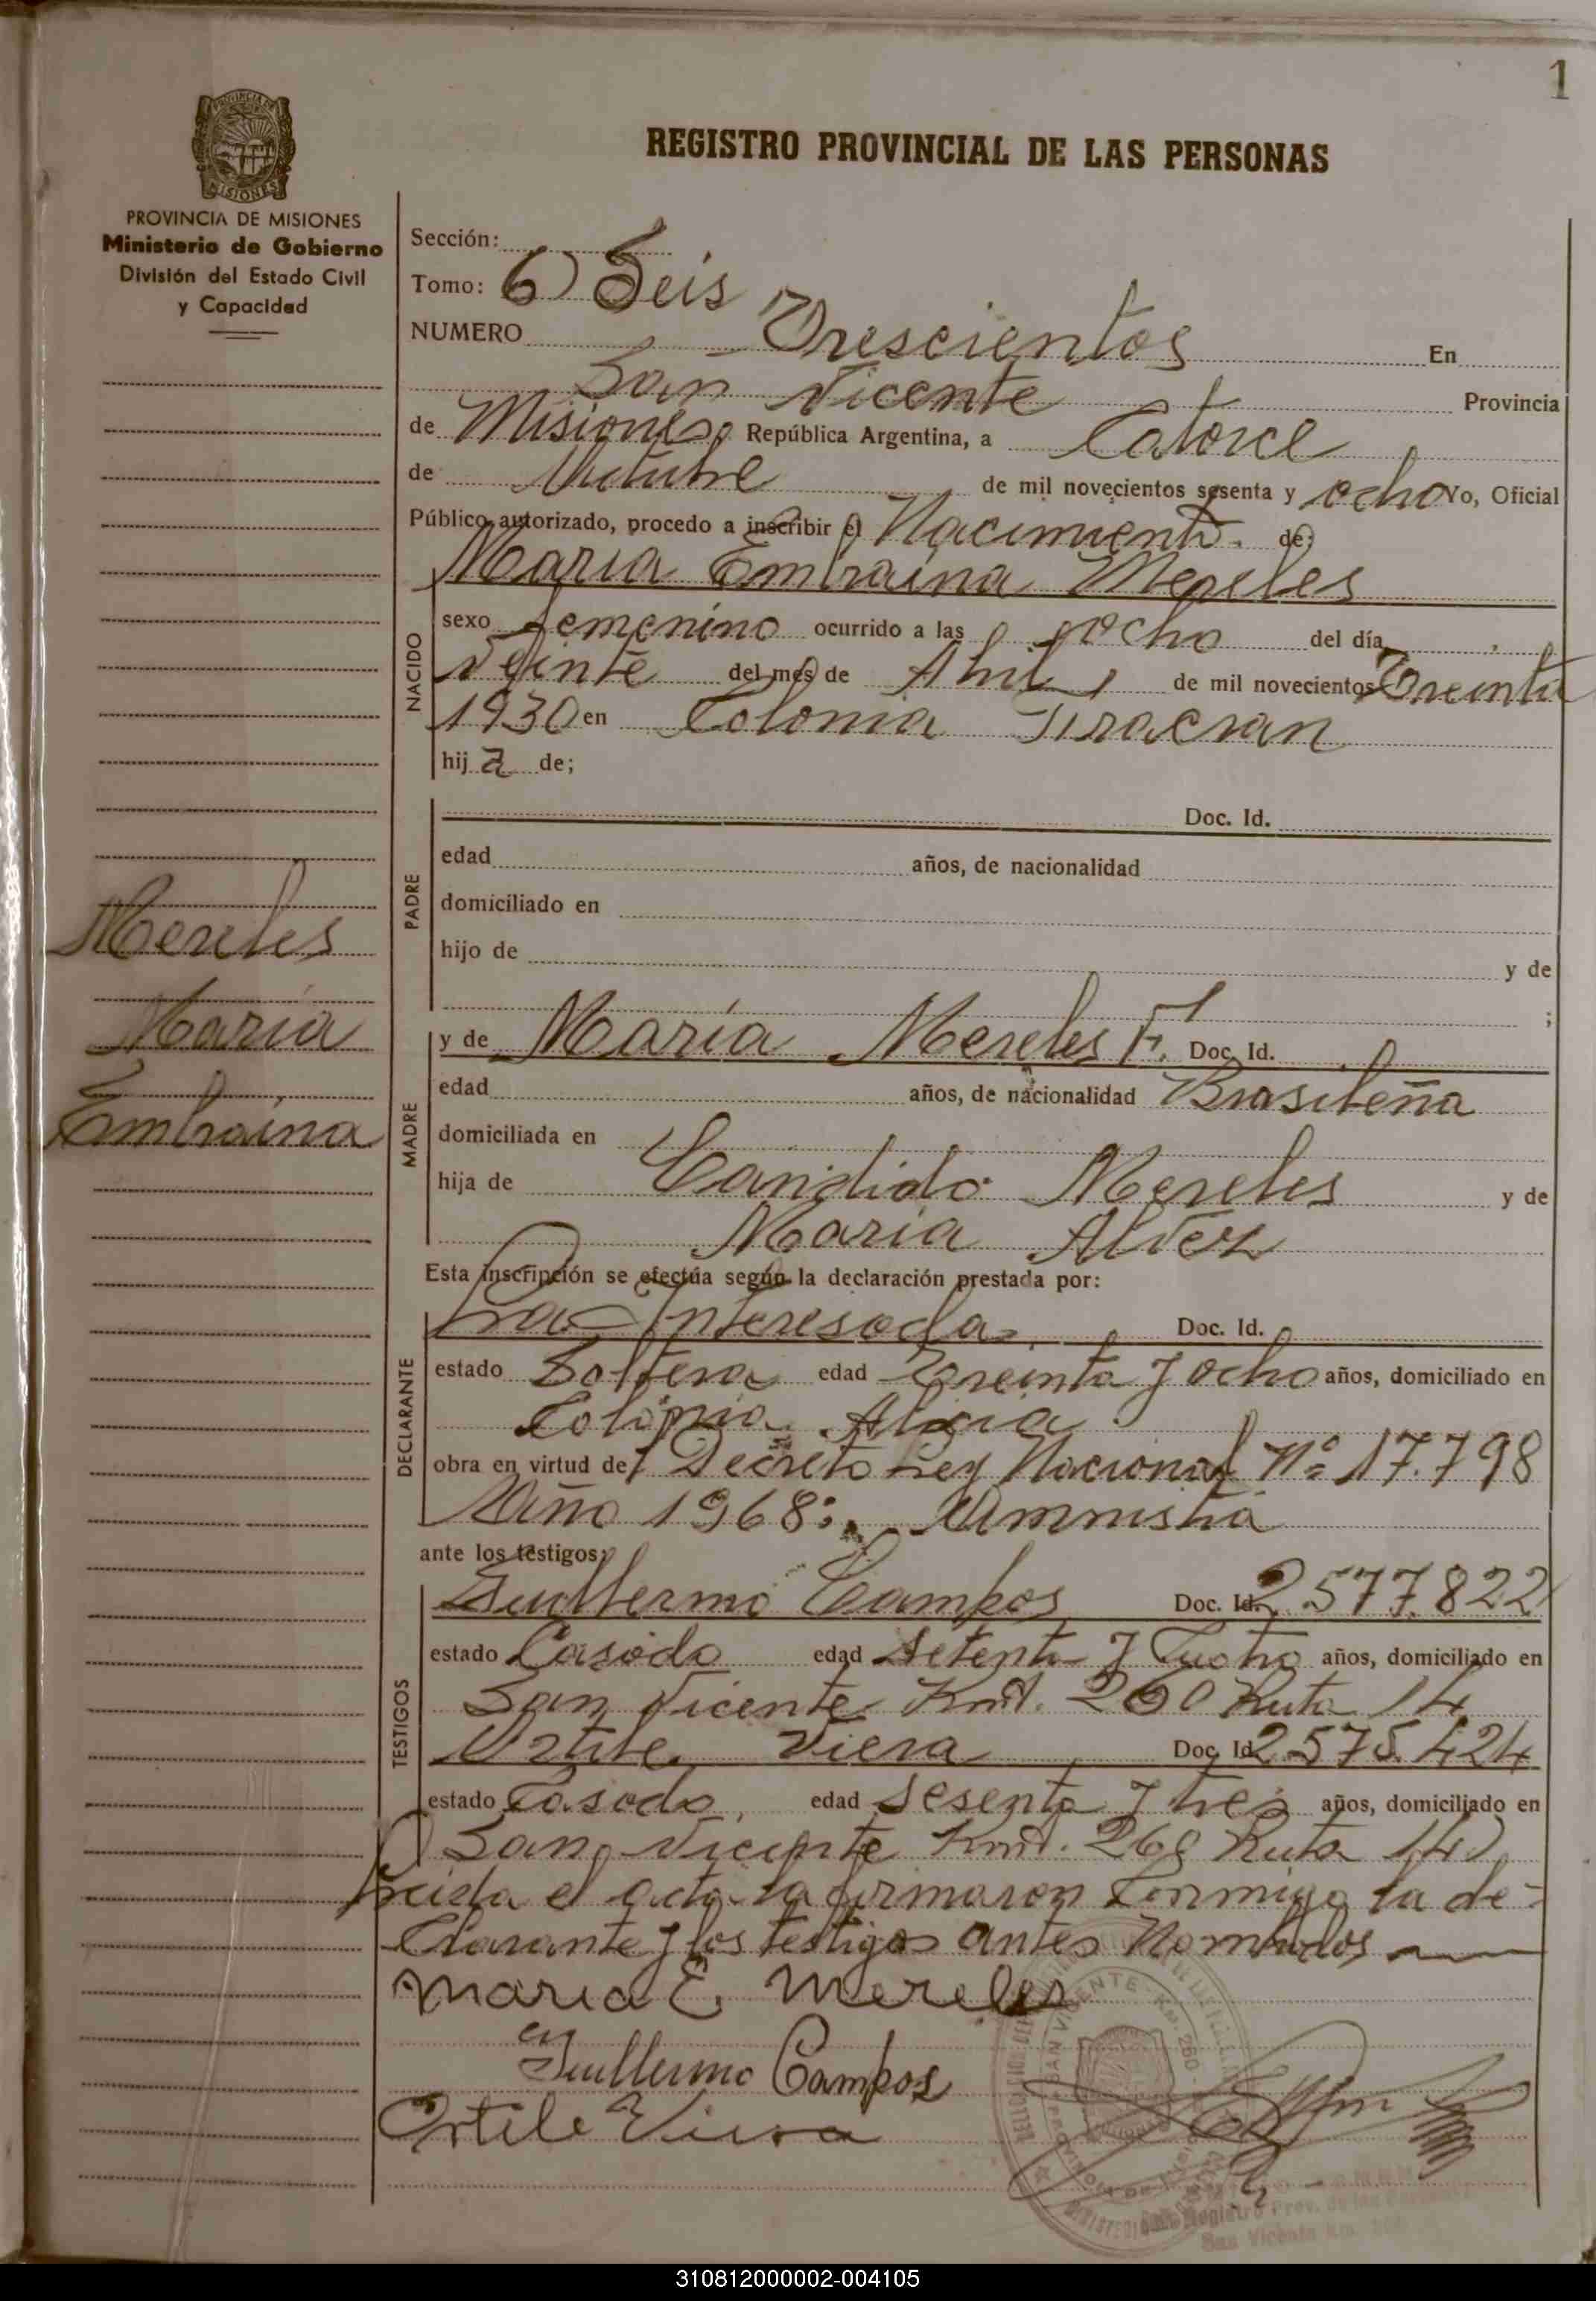 1
REGISTRO PROVINCIAL DE LAS PERSONAS
PROVINCIA DE MISIONES
Ministerio de Gobierno
División del Estado Civil
y Capacidad
Sección:
Tomo: 6) Seis
NUMERO Trescientos En
San Vicente Provincia
de Misiones República Argentina, a Catorce
de Octubre de mil novecientos sesenta y ocho Yo, Oficial
Público autorizado, procedo a inscribir el Nacimiento. de:
Maria Embraina Mereles
NACIDO
sexo femenino ocurrido a las ocho del día
Veinte del mes de Abril de mil novecientos Treinta
1930 en Colonia
hij a de;
PADRE
Doc. Id.
edad años, de nacionalidad
domiciliado en
hijo de y de
;
Mereles
Maria
Embraina
MADRE
y de Maria Mereles F. Doc. Id.
edad años, de nacionalidad Brasileña
domiciliada en
hija de Candido Mereles y de
Maria Alvez
Esta inscripción se efectúa según la declaración prestada por:
DECLARANTE
La Interesada Doc. Id.
estado Soltera edad Treinta y ocho años, domiciliado en
Colonia Alicia
obra en virtud del Decreto Ley Nacional Nº 17.798
Año 1968: Amnistia
ante los testigos:
TESTIGOS
Guillermo Campos Doc. Id. 2.577.822
estado Casado edad Setenta y Cuatro años, domiciliado en
San Vicente Kmt. 260 Ruta 14
Ortile Viera Doc. Id. 2.575.424
estado Casado, edad Sesenta y tres años, domiciliado en
San Vicente Kmt. 260 Ruta 14)
Leida el acta la firmaron Conmigo la de-
clarante y los testigos antes Nombrados
Maria E. Mereles
Guillermo Campos
Ortile Viera
SAN VICENTE - Km. 260
310812000002-004105